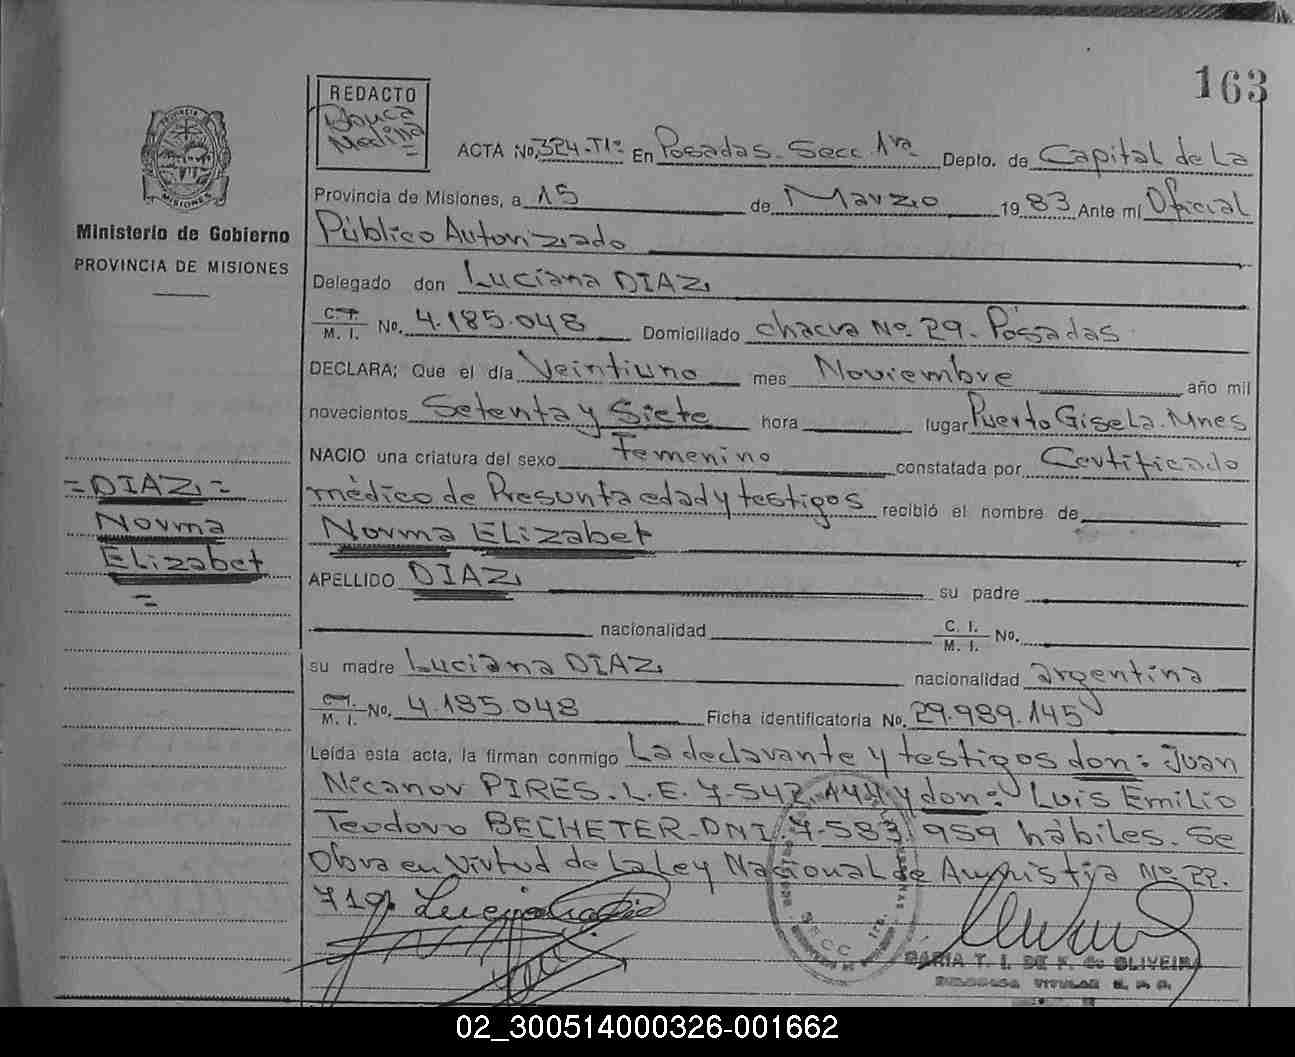 163
REDACTO
Blanca
Medina
ACTA No. 324-T1º En Posadas. Secc 1ra Depto. de Capital de La
Provincia de Misiones, a 15 de Marzo 1983 Ante mí Oficial
Público Autorizado
Ministerio de Gobierno
PROVINCIA DE MISIONES
Delegado don Luciana DIAZ
C. I.
M. I. No. 4.185.048 Domiciliado chacra Nº 29. Posadas
DECLARA; Que el día Veintiuno mes Noviembre año mil
novecientos Setenta y Siete hora lugar Puerto Gisela. Mnes
NACIO una criatura del sexo Femenino constatada por Certificado
médico de Presunta edad y testigos recibió el nombre de
Norma Elizabet
=DIAZ=
Norma
Elizabet
=
APELLIDO DIAZ su padre
nacionalidad C. I.
M. I. No.
su madre Luciana DIAZ nacionalidad argentina
M. I. No. 4.185.048 Ficha identificatoria No. 29.989.145
Leída esta acta, la firman conmigo La declarante y testigos don: Juan
Nicanor PIRES. L.E. 7.542.144 y don: Luis Emilio
Teodoro BECHETER-DNI 7.583.959 hábiles. Se
Obra en Virtud de La Ley Nacional de Amnistia Nº 22.
719.
SECC
MARIA T. I. DE F. de OLIVEIRA
TITULAR
02_300514000326-001662